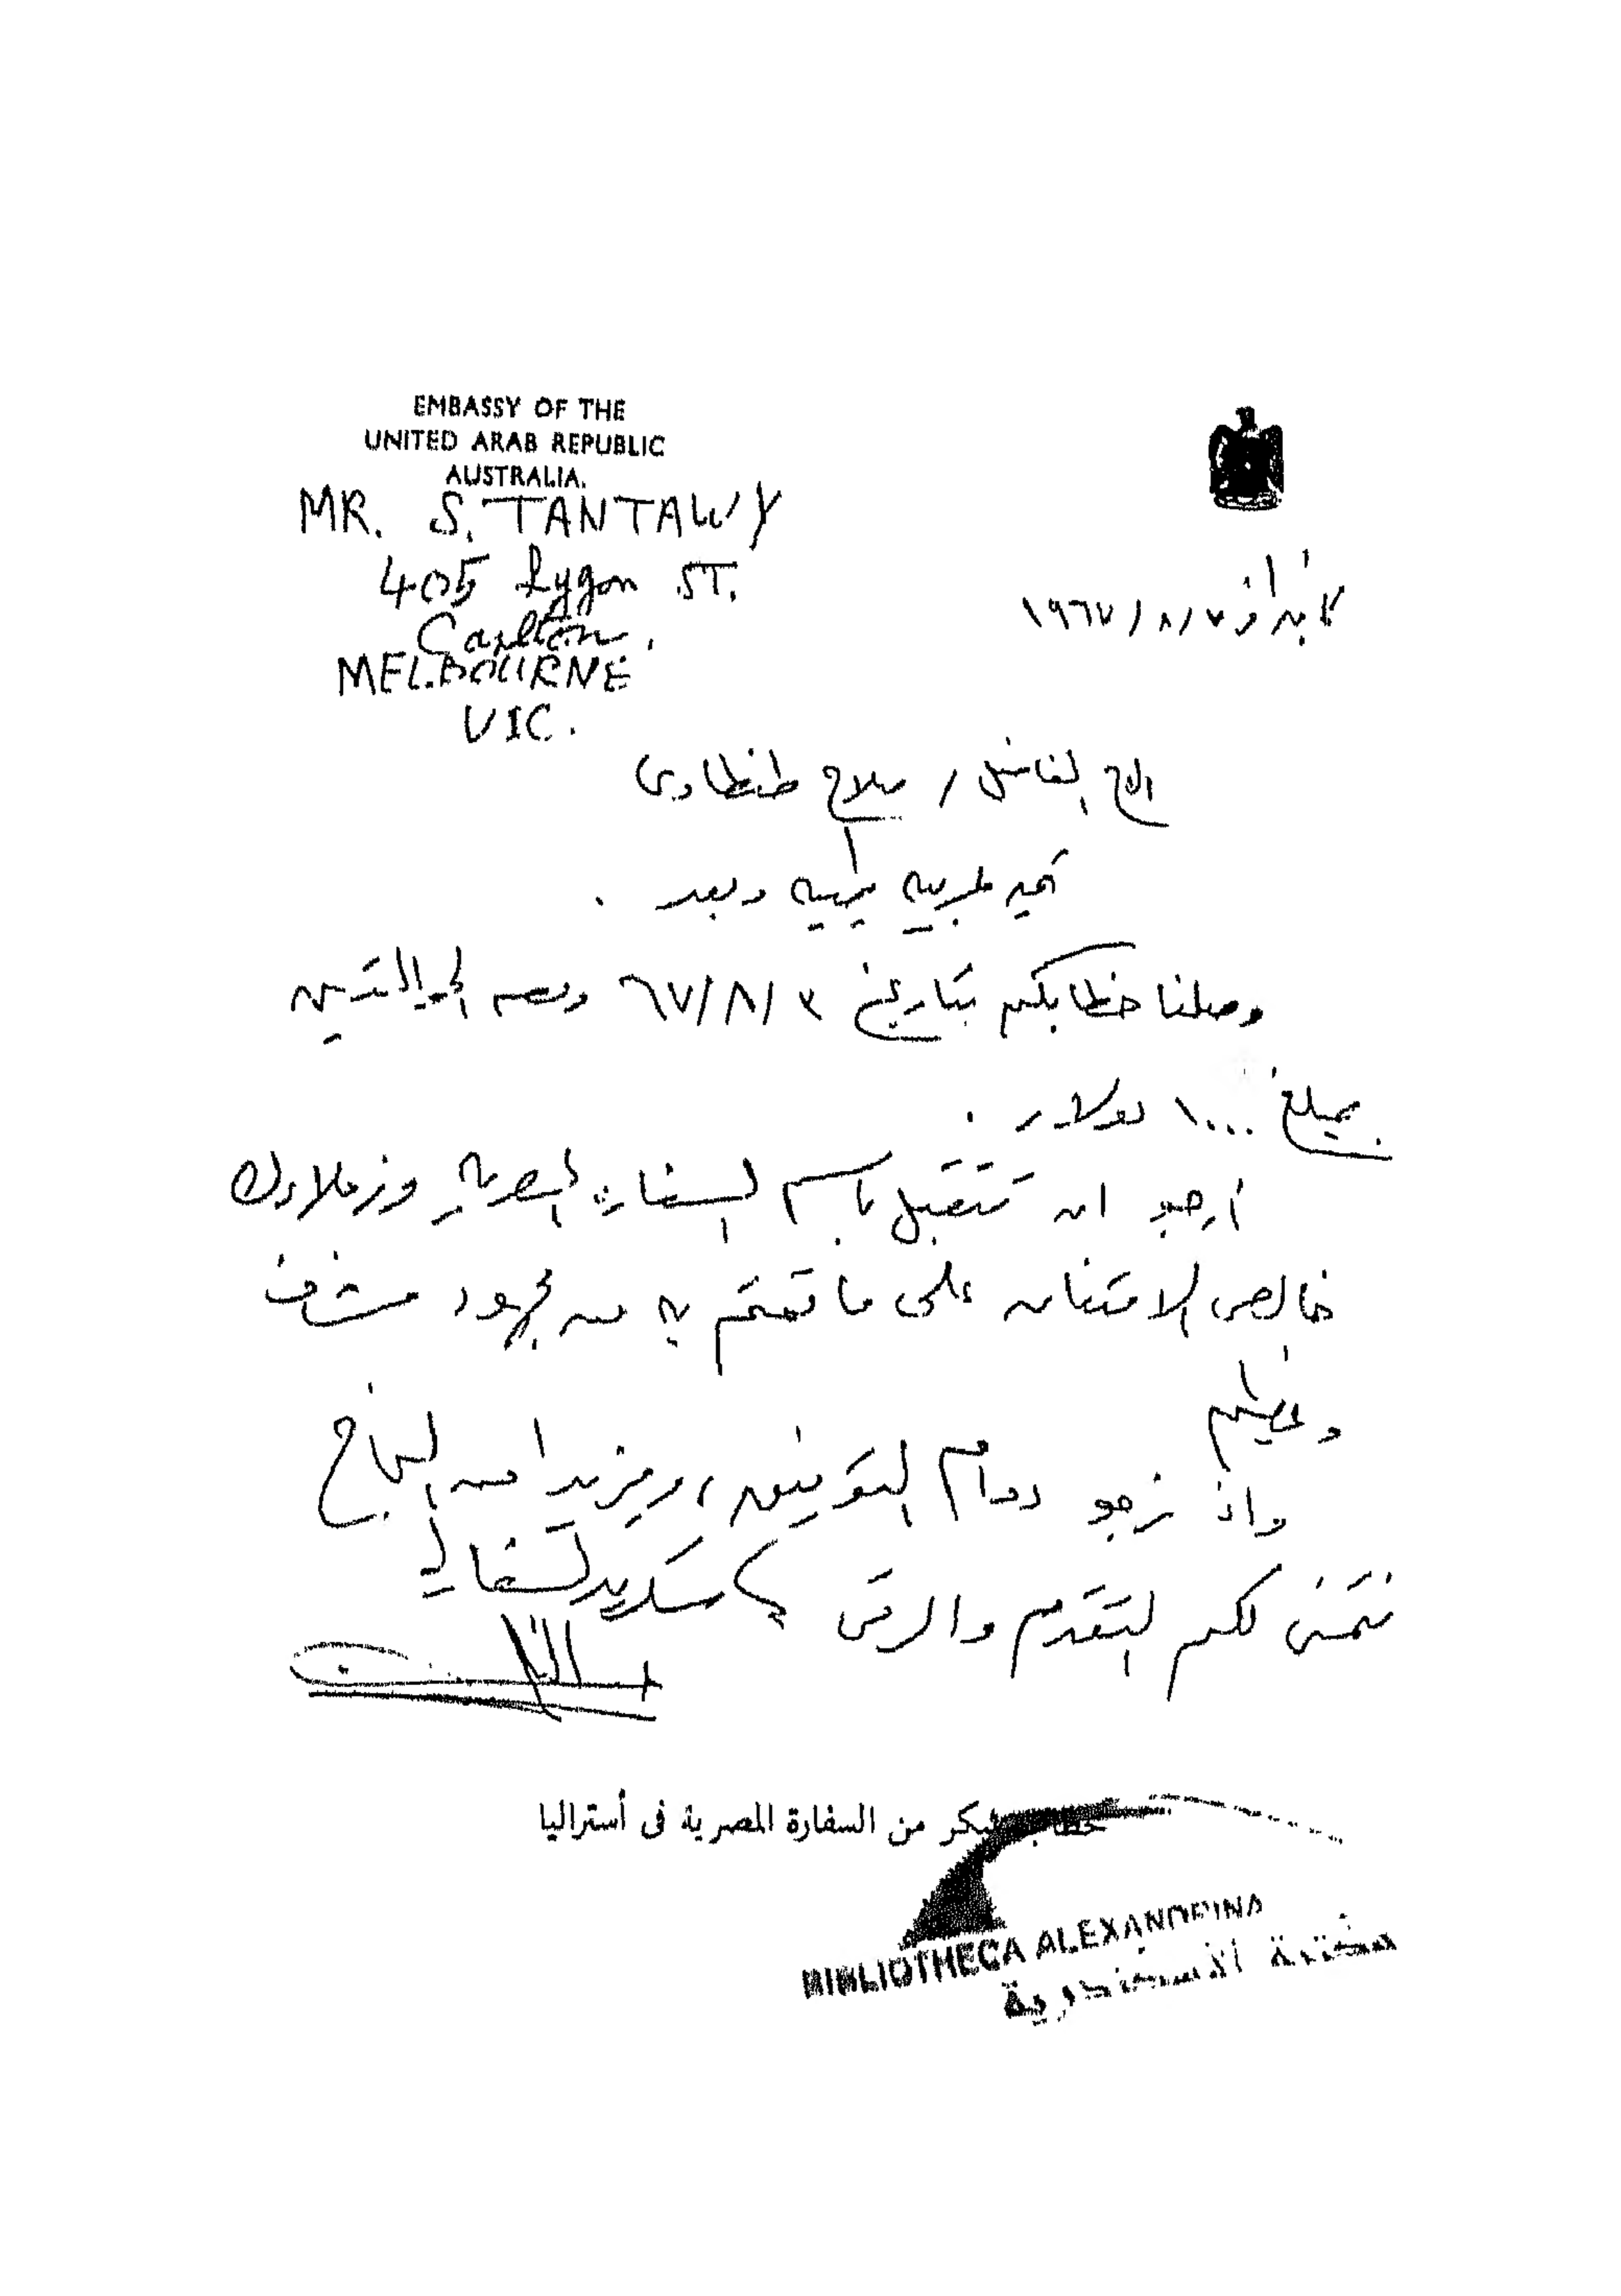 EMBASSY OF THE
UNITED ARAB REPUBLIC
AUSTRALIA.
MR. S. TANTAWY
405 Lygon ST.
Carlton.
MELBOURNE
VIC.
كانبرا في ١٩٦٧/٨/٧
الاخ الفاضل / صلاح طنطاوى
تحية طيبة وبعد .
وصلنا خطابكم بتاريخ ٦٧/٨/٣ وبه الحوالتين
بمبلغ ١٠٠٠ دولار .
أرجو ان تتقبل باسم السفارة المصرية وزملاءك
خالص الامتنان على ما قمتم به من مجهود مشرف
وعظيم
واذ نرجو دوام التوفيق، ومزيدا من النجاح
نتمنى لكم التقدم والرقى
خطاب شكر من السفارة المصرية فى أستراليا
BIBLIOTHECA ALEXANDRINA
مكتبة الاسكندرية